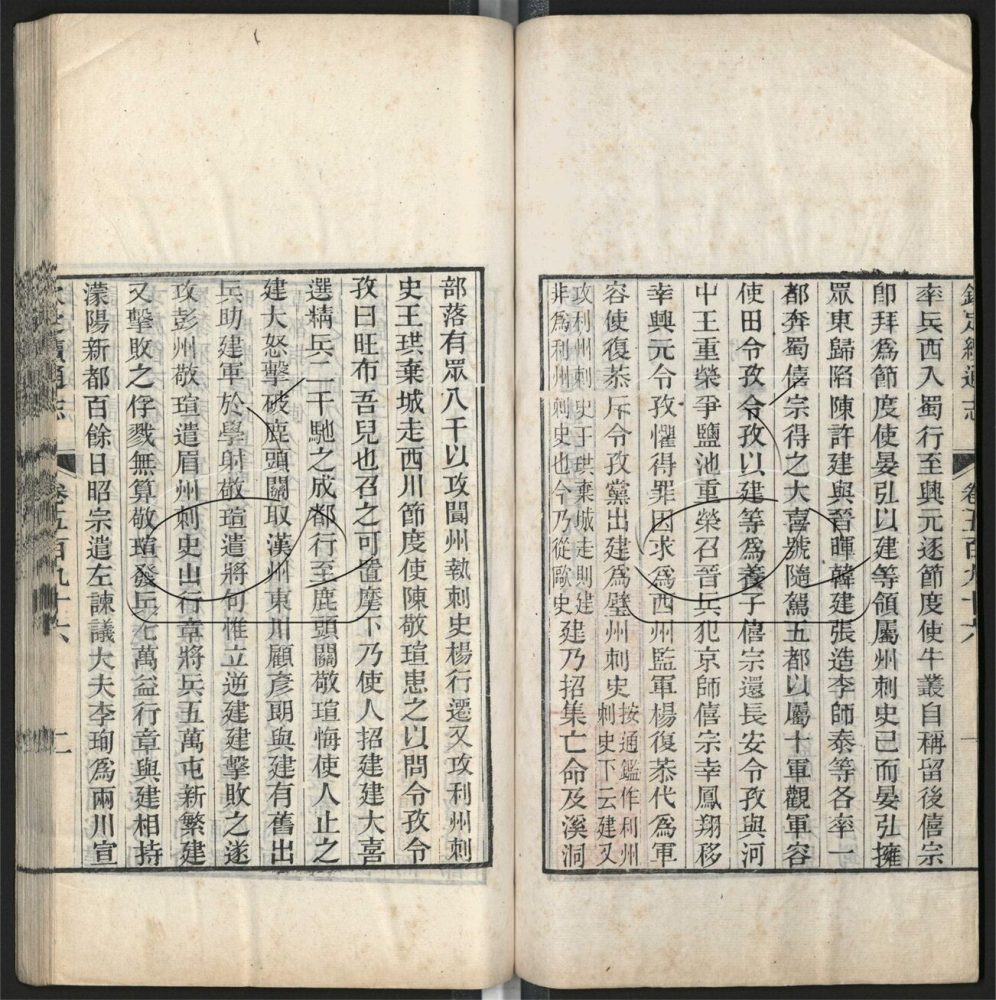 欽定續通志 卷五百九十六 一
率兵西入蜀行至興元逐節度使牛叢自稱留後僖宗
卽拜爲節度使晏弘以建等領屬州刺史已而晏弘擁
眾東歸陷陳許建與晉暉韓建張造李師泰等各率一
都奔蜀僖宗得之大喜號隨駕五都以屬十軍觀軍容
使田令孜令孜以建等爲養子僖宗還長安令孜與河
中王重榮爭鹽池重榮召晉兵犯京師僖宗幸鳳翔移
幸興元令孜懼得罪因求爲西州監軍楊復恭代爲軍
容使復恭斥令孜黨出建爲璧州刺史
按通鑑作利州
刺史下云建又
攻利州刺史王珙棄城走則建
非爲利州刺史也今乃從歐史
建乃招集亡命及溪洞
部落有眾八千以攻閬州執刺史楊行遷又攻利州刺
史王珙棄城走西川節度使陳敬瑄患之以問令孜令
孜曰旺布吾兒也召之可置麾下乃使人招建大喜
選精兵二千馳之成都行至鹿頭關敬瑄悔使人止之
建大怒擊破鹿頭關取漢州東川顧彥朗與建有舊出
兵助建軍於學射敬瑄遣將句惟立逆建建擊敗之遂
攻彭州敬瑄遣眉州刺史山行章將兵五萬屯新繁建
又擊敗之俘戮無算敬瑄發兵七萬益行章與建相持
濛陽新都百餘日昭宗遣左諫議大夫李珣爲兩川宣
續通志 卷五百九十六 二